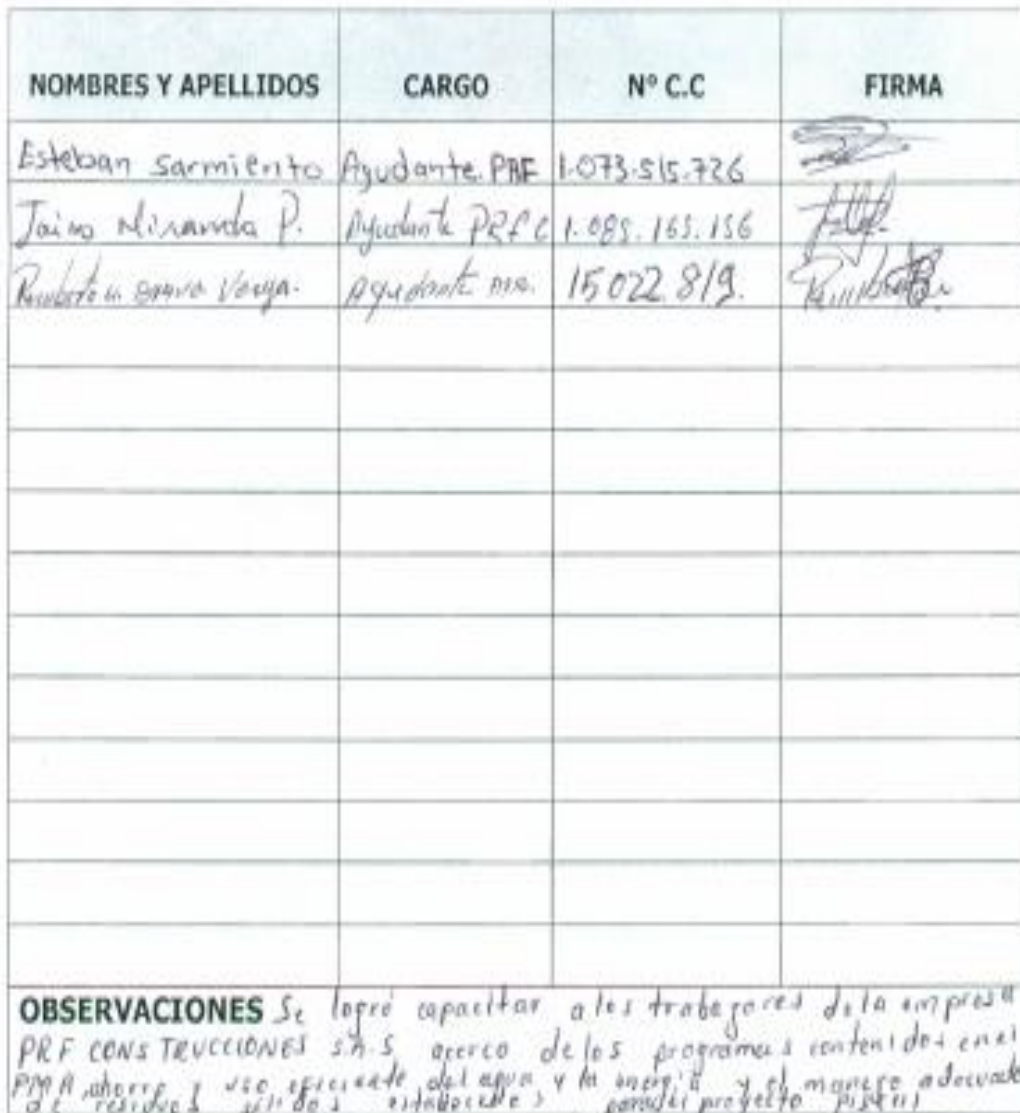 NOMBRES Y APELLIDOS CARGO N° C.C FIRMA
Esteban Sarmiento Ayudante PRF 1.073.515.726
Jaime Miranda P. Ayudante PRFC 1.085.165.156
Ayudante 15022.819.
OBSERVACIONES Se logró capacitar a los trabajores de la empresa
PRF CONSTRUCCIONES S.A.S acerco de los programas contenidos en el
PMA, ahorro y uso eficiente del agua y la energia y el manejo adecuado
de residuos solidos establecidos para el proyecto